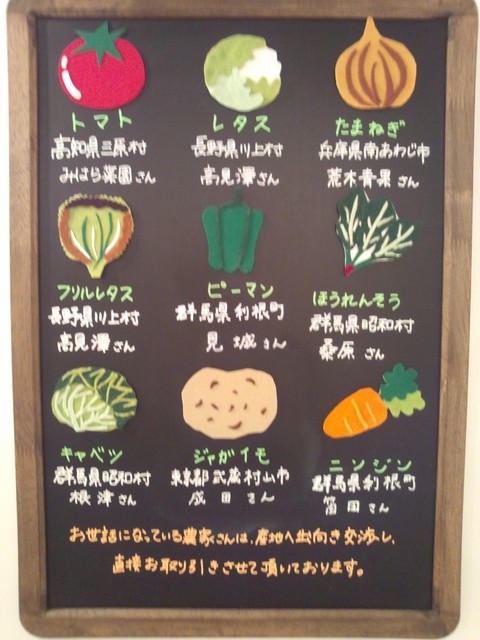 トマト
高知県三原村
みはら楽園さん
レタス
長野県川上村
高見澤さん
たまねぎ
兵庫県南あわじ市
荒木青果さん
フリルレタス
長野県川上村
高見澤さん
ピーマン
群馬県利根町
見城さん
ほうれんそう
群馬県昭和村
桑原さん
キャベツ
群馬県昭和村
根津さん
ジャガイモ
東京都武蔵村山市
成田さん
ニンジン
群馬県利根町
さん
お世話になっている農家さんは、産地へ出向き交渉し、
直接お取り引きさせて頂いております。